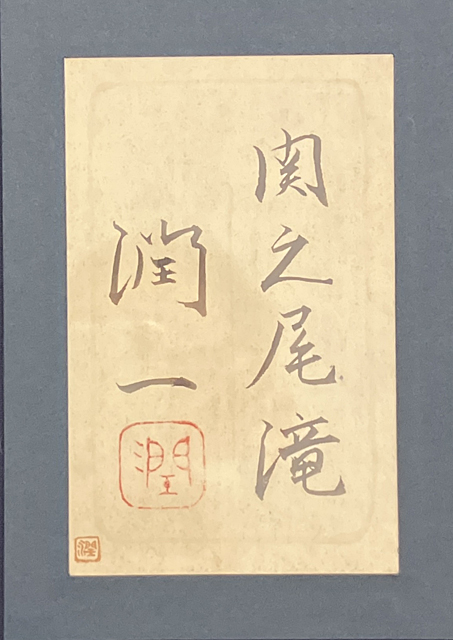 関之尾滝
潤一
潤
潤